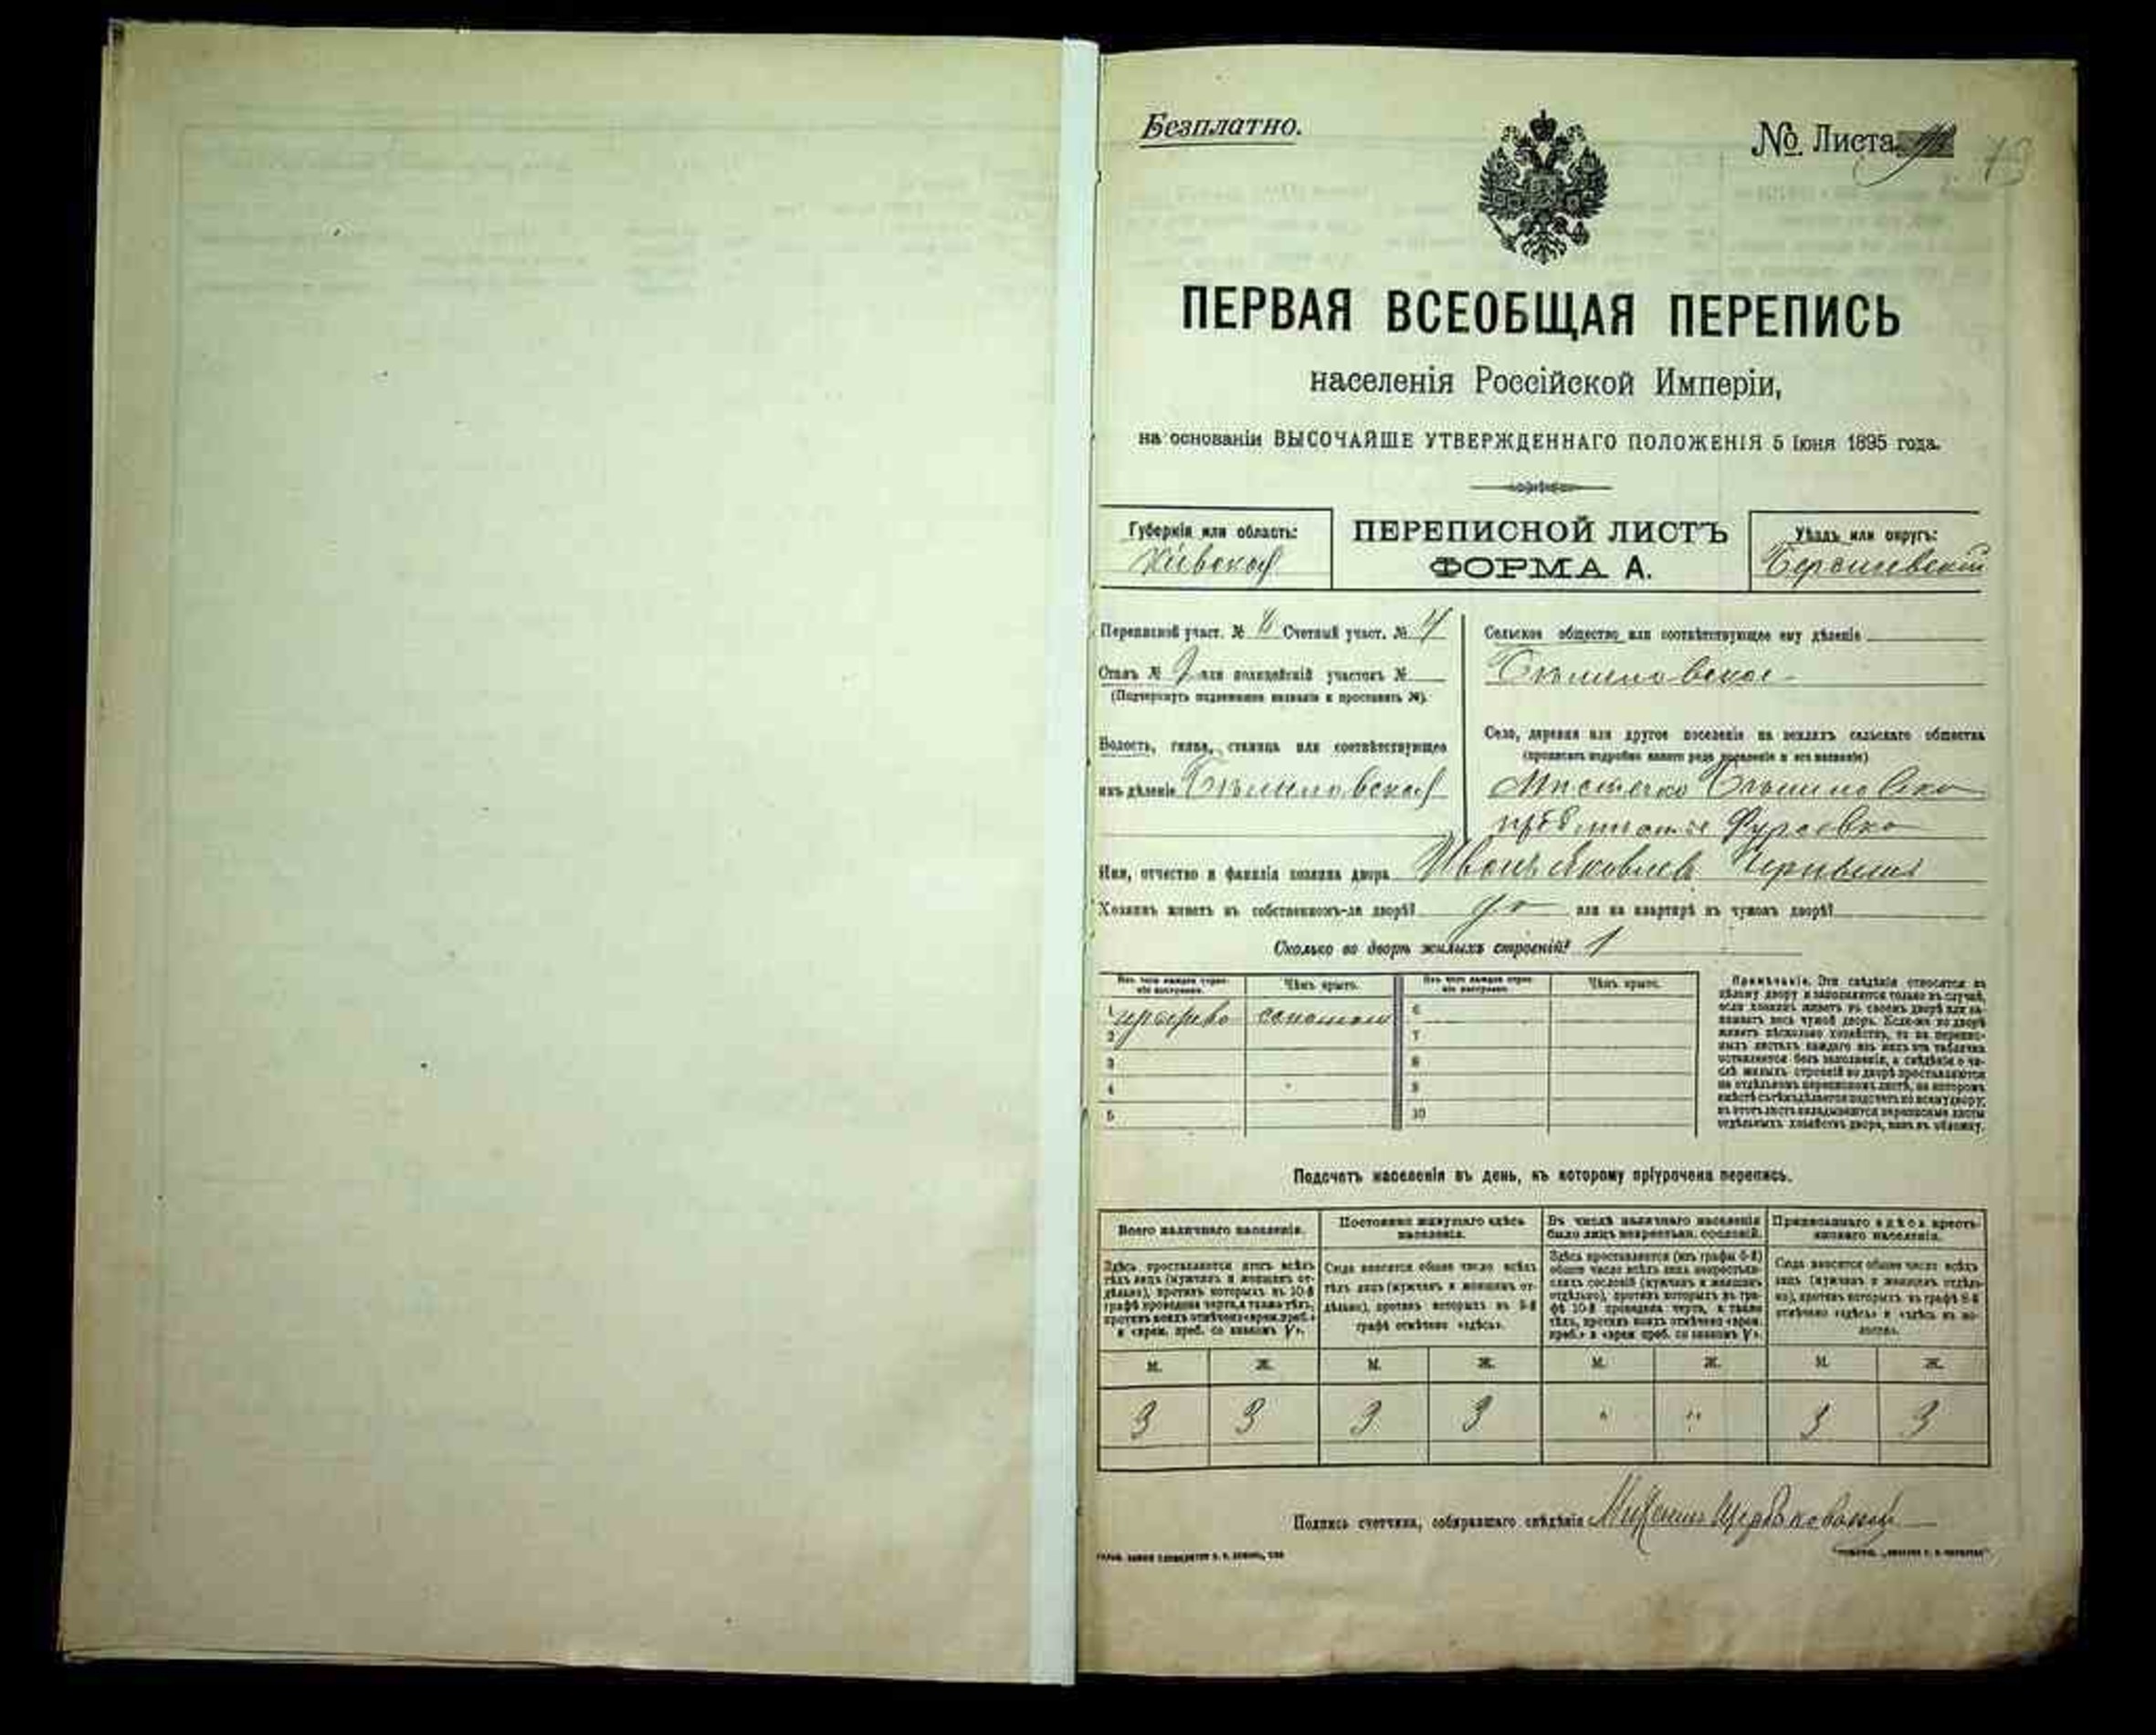 Безплатно.
№ Листа
73
ПЕРВАЯ ВСЕОБЩАЯ ПЕРЕПИСЬ
населенія Россійской Имперіи,
на основаніи ВЫСОЧАЙШЕ УТВЕРЖДЕННАГО ПОЛОЖЕНІЯ 5 Іюня 1895 года.
Губернія или область:
Кіевская
ПЕРЕПИСНОЙ ЛИСТЪ
ФОРМА А.
Уѣздъ или округъ:
Бердичевскій
Переписной участ. № Счетный участ. № 4
Станъ № 2 или полицейскій участокъ №
(Подчеркнуть подлежащее названіе и проставить №).
Волость, гмина, станица или соотвѣтствующее
имъ дѣленіе Бѣлиловская
Сельское общество или соотвѣтствующее ему дѣленіе
Бѣлиловское
Село, деревня или другое поселеніе на земляхъ сельскаго общества
(прописать подробно какого рода поселеніе и его названіе)
Мѣстечко Бѣлиловка
предмѣстье Фурсовка
Имя, отчество и фамилія хозяина двора Иванъ Яковлевъ
Хозяинъ живетъ въ собственномъ-ли дворѣ? да или на квартирѣ въ чужомъ дворѣ?
Сколько во дворѣ жилыхъ строеній? 1
Изъ чего каждое строеніе построено. Чѣмъ крыто. Изъ чего каждое строеніе построено. Чѣмъ крыто.
1 дерево соломою 6
2 7
3 8
4 9
5 10
Примѣчаніе. Эти свѣдѣнія относятся къ
цѣлому двору и заполняются только въ случаѣ,
если хозяинъ живетъ въ своемъ дворѣ или занимаетъ
весь чужой дворъ. Если-же во дворѣ
живетъ нѣсколько хозяйствъ, то на переписныхъ
листахъ каждаго изъ нихъ эта табличка
оставляется безъ заполненія, а свѣдѣнія о числѣ
жилыхъ строеній во дворѣ проставляются
на отдѣльномъ переписномъ листѣ, на которомъ
вмѣстѣ съ тѣмъ дѣлается подсчетъ по всему двору;
въ этотъ листъ вкладываются переписные листы
отдѣльныхъ хозяйствъ двора, какъ въ обложку.
Подсчетъ населенія въ день, къ которому пріурочена перепись.
Всего наличнаго населенія.
Постоянно живущаго здѣсь населенія.
Въ числѣ наличнаго населенія было лицъ некрестьян. сословій.
Приписаннаго здѣсь крестьянскаго населенія.
Здѣсь проставляется итогъ всѣхъ
тѣхъ лицъ (мужчинъ и женщинъ отдѣльно),
противъ которыхъ въ 10-й
графѣ проведена черта, а также тѣхъ,
противъ коихъ отмѣчено «врем. преб.»
и «врем. преб. со знакомъ V».
Сюда вносится общее число всѣхъ
тѣхъ лицъ (мужчинъ и женщинъ отдѣльно),
противъ которыхъ въ 9-й
графѣ отмѣчено «здѣсь».
Здѣсь проставляется (изъ графы 6-й)
общее число всѣхъ лицъ некрестьянскихъ
сословій (мужчинъ и женщинъ
отдѣльно), противъ которыхъ въ графѣ
10-й проведена черта, а также
тѣхъ, противъ коихъ отмѣчено «врем.
преб.» и «врем. преб. со знакомъ V».
Сюда вносится общее число всѣхъ
лицъ (мужчинъ и женщинъ отдѣльно),
противъ которыхъ въ графѣ 8-й
отмѣчено «здѣсь» и «здѣсь въ волости».
М. Ж. М. Ж. М. Ж. М. Ж.
3 3 3 3 " " 3 3
Подпись счетчика, собиравшаго свѣдѣнія